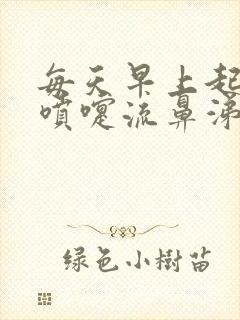 每天早上起
喷嚏流鼻涕
绿色小樹苗